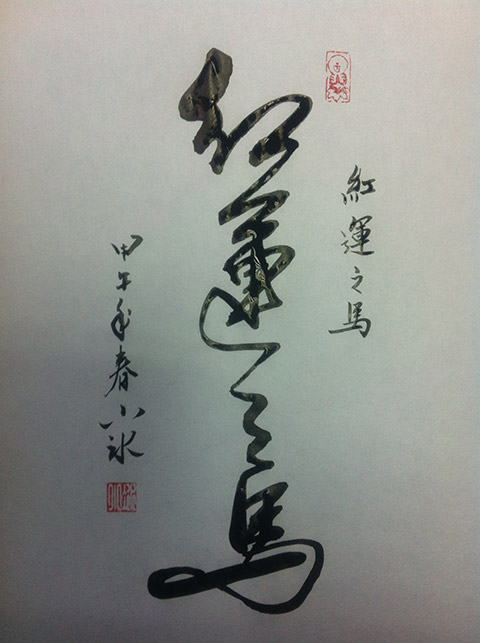 紅運之馬
红運之馬
甲午年春小冰